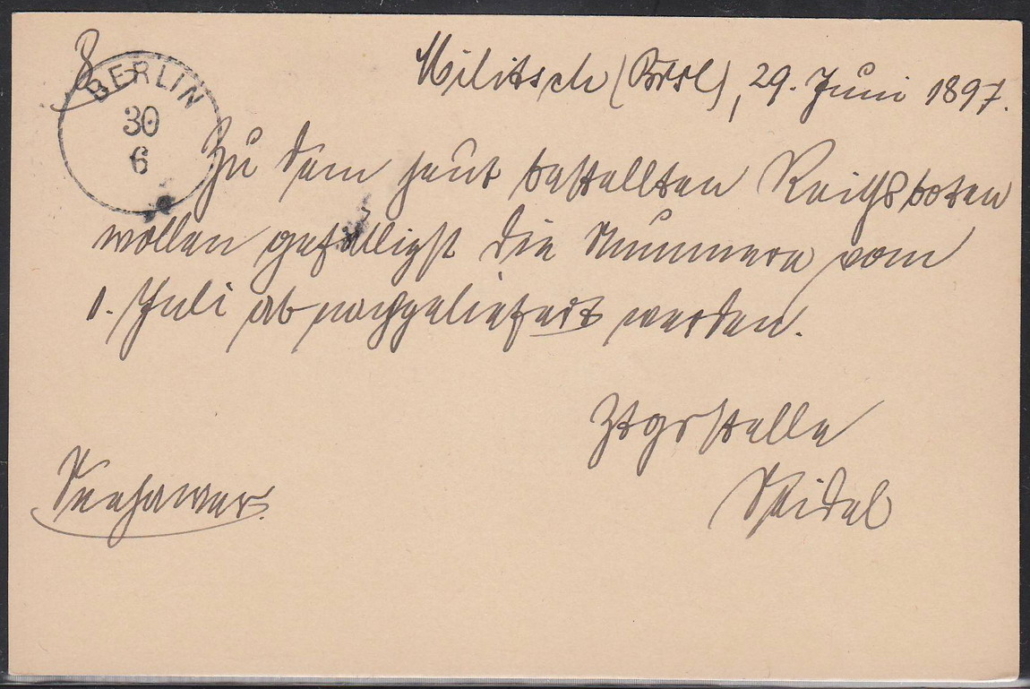 8
BERLIN
30
6
Militsch (Brsl), 29. Juni 1897.
Zu dem heut bestellten Reichsboten
wollen gefälligst die Nummern vom
1. Juli ab nachgeliefert werden.
Ztgsstelle
Seidel